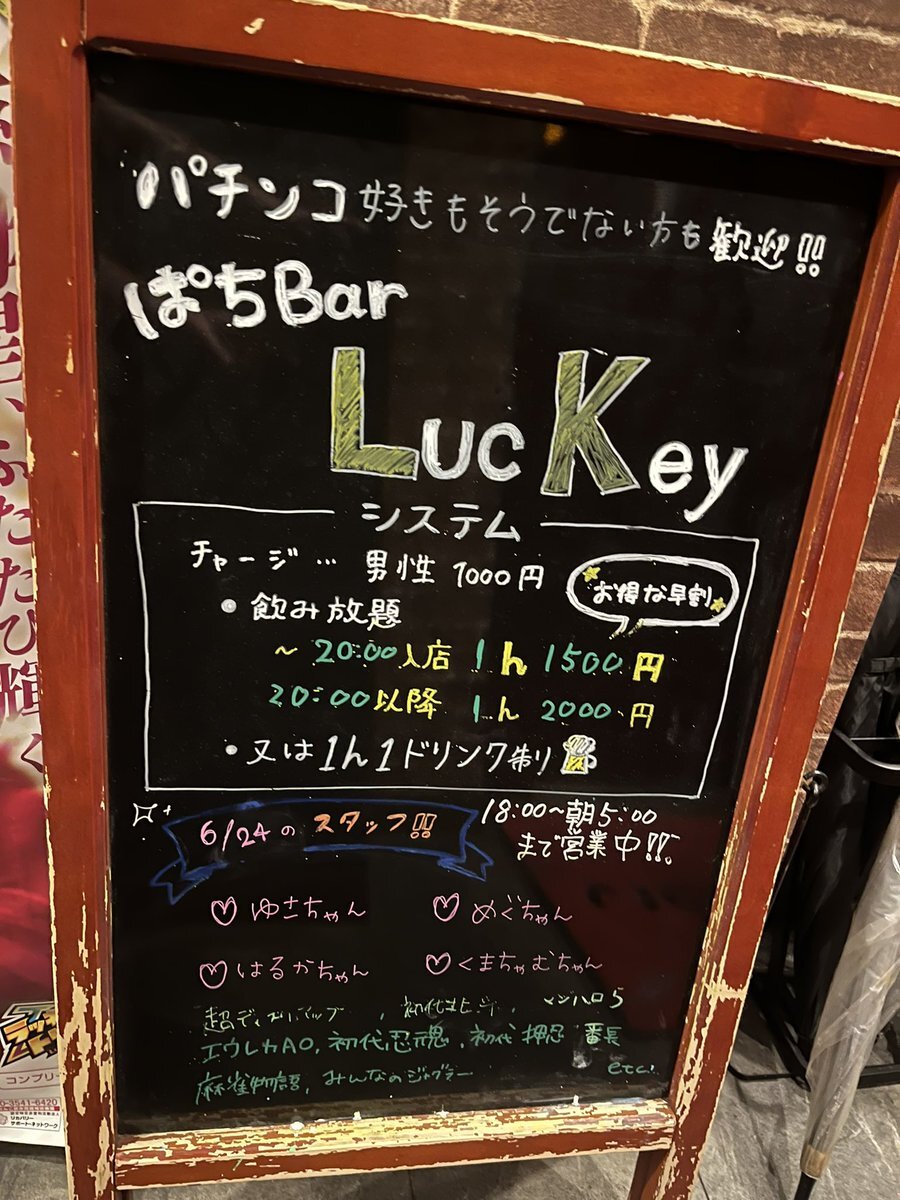 パチンコ好きもそうでない方も歓迎!!
ぱちBar
LucKey
システム
チャージ… 男性 1000円
お得な早割
・飲み放題
~20:00入店 1h 1500円
20:00以降 1h 2000円
・又は1h1ドリンク制り
6/24のスタッフ!!
18:00~朝5:00
まで営業中!!
♡ゆさちゃん
♡めぐちゃん
♡はるかちゃん
♡くまちゃむちゃん
初代北斗, マジハロ5
エウレカAO, 初代忍魂, 初代 押忍 番長
麻雀物語, みんなのジャグラー etc!
ふたたび輝く
コンプリ
0-3541-6420
リカバリー
サポート・ネットワーク